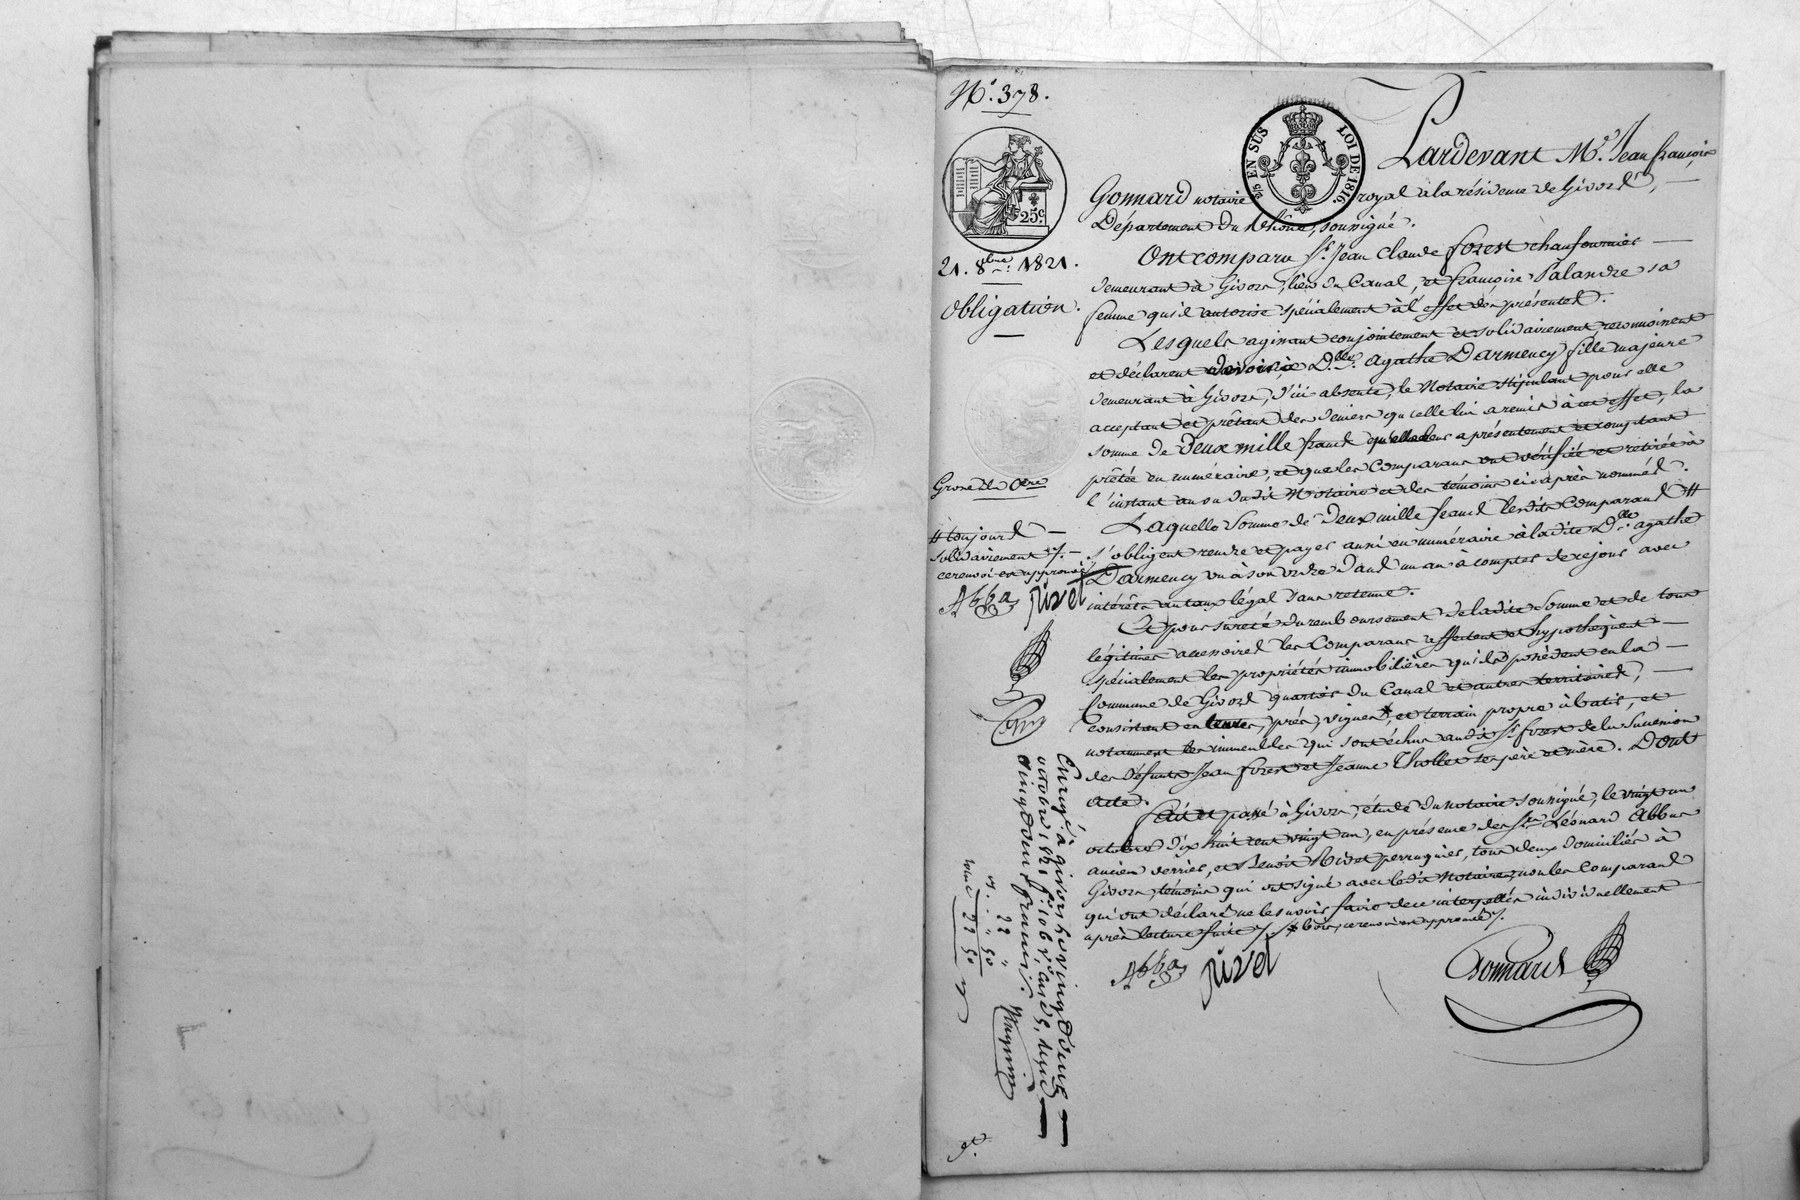 N.° 378.
25 EN SUS
LOI DE 1816.
25 c.
21. 8.bre 1821.
Obligation.
Pardevant M.e Jean François
Gonnard notaire royal à la résidence de Givors, —
Département du Rhône, soussigné.
Ont comparu S.r Jean Claude forest chaufournier —
demeurant à Givors, lieu du Canal, et françoise Palandre sa
femme qu'il autorise spécialement à l'effet des présentes.
Lesquels agissant conjointement et solidairement, reconnoissent
et déclarent devoir à D.lle Agathe Darmency fille majeure
demeurant à Givors, d'ici absente, le Notaire stipulant pour elle
acceptant et prêtant des deniers qu'elle lui a remis à cet effet, la
somme de Deux mille francs qu'elle leur a présentement et comptant
prêtée en numéraire, et que les Comparans ont vérifiée et retirée à
l'instant au vu dudit Notaire et des témoins ci-après nommés.
Laquelle somme de Deux mille francs lesdits Comparans #
s'obligent rendre et payer aussi en numéraire à ladite D.lle agathe
Darmency ou à son ordre dans un an à compter de ce jour avec
intérêts au taux légal sans retenue.
Et pour sûreté du remboursement de ladite somme et de tous
légitimes accessoires les Comparans affectent et hypothèquent —
spécialement les propriétés immobilières qu'ils possèdent en la —
Commune de Givors quartier du Canal et autres territoires, —
consistant en terres, prés, vignes *, et terrain propre à batir, et
notamment les immeubles qui sont échus audit S.r forest de la succession
des défunts Jean forest et Jeanne Thollet ses père et mère. Dont
acte.
Fait et passé à Givors, étude du notaire soussigné, le vingt un
octobre dix huit cent vingt un, en présence des S.rs Léonard Abbas
ancien verrier, et Benoît Rivet perruquier, tous deux domiciliés à
Givors, témoins qui ont signé avec ledit Notaire, non les Comparans
qui ont déclaré ne le savoir faire de ce interpellés individuellement
après lecture faite /. * bois, ce renvoi est approuvé /.
Abbas Rivet Gonnard
Grosse à la Ctre
# toujours —
solidairement /. —
ce renvoi est approuvé /.
Abbas Rivet
Enregé à givors le vingt deux —
octobre 1821 f.° 106 v.° Case 5, reçu —
vingt deux francs.
22 "
" . . " 50
22 50